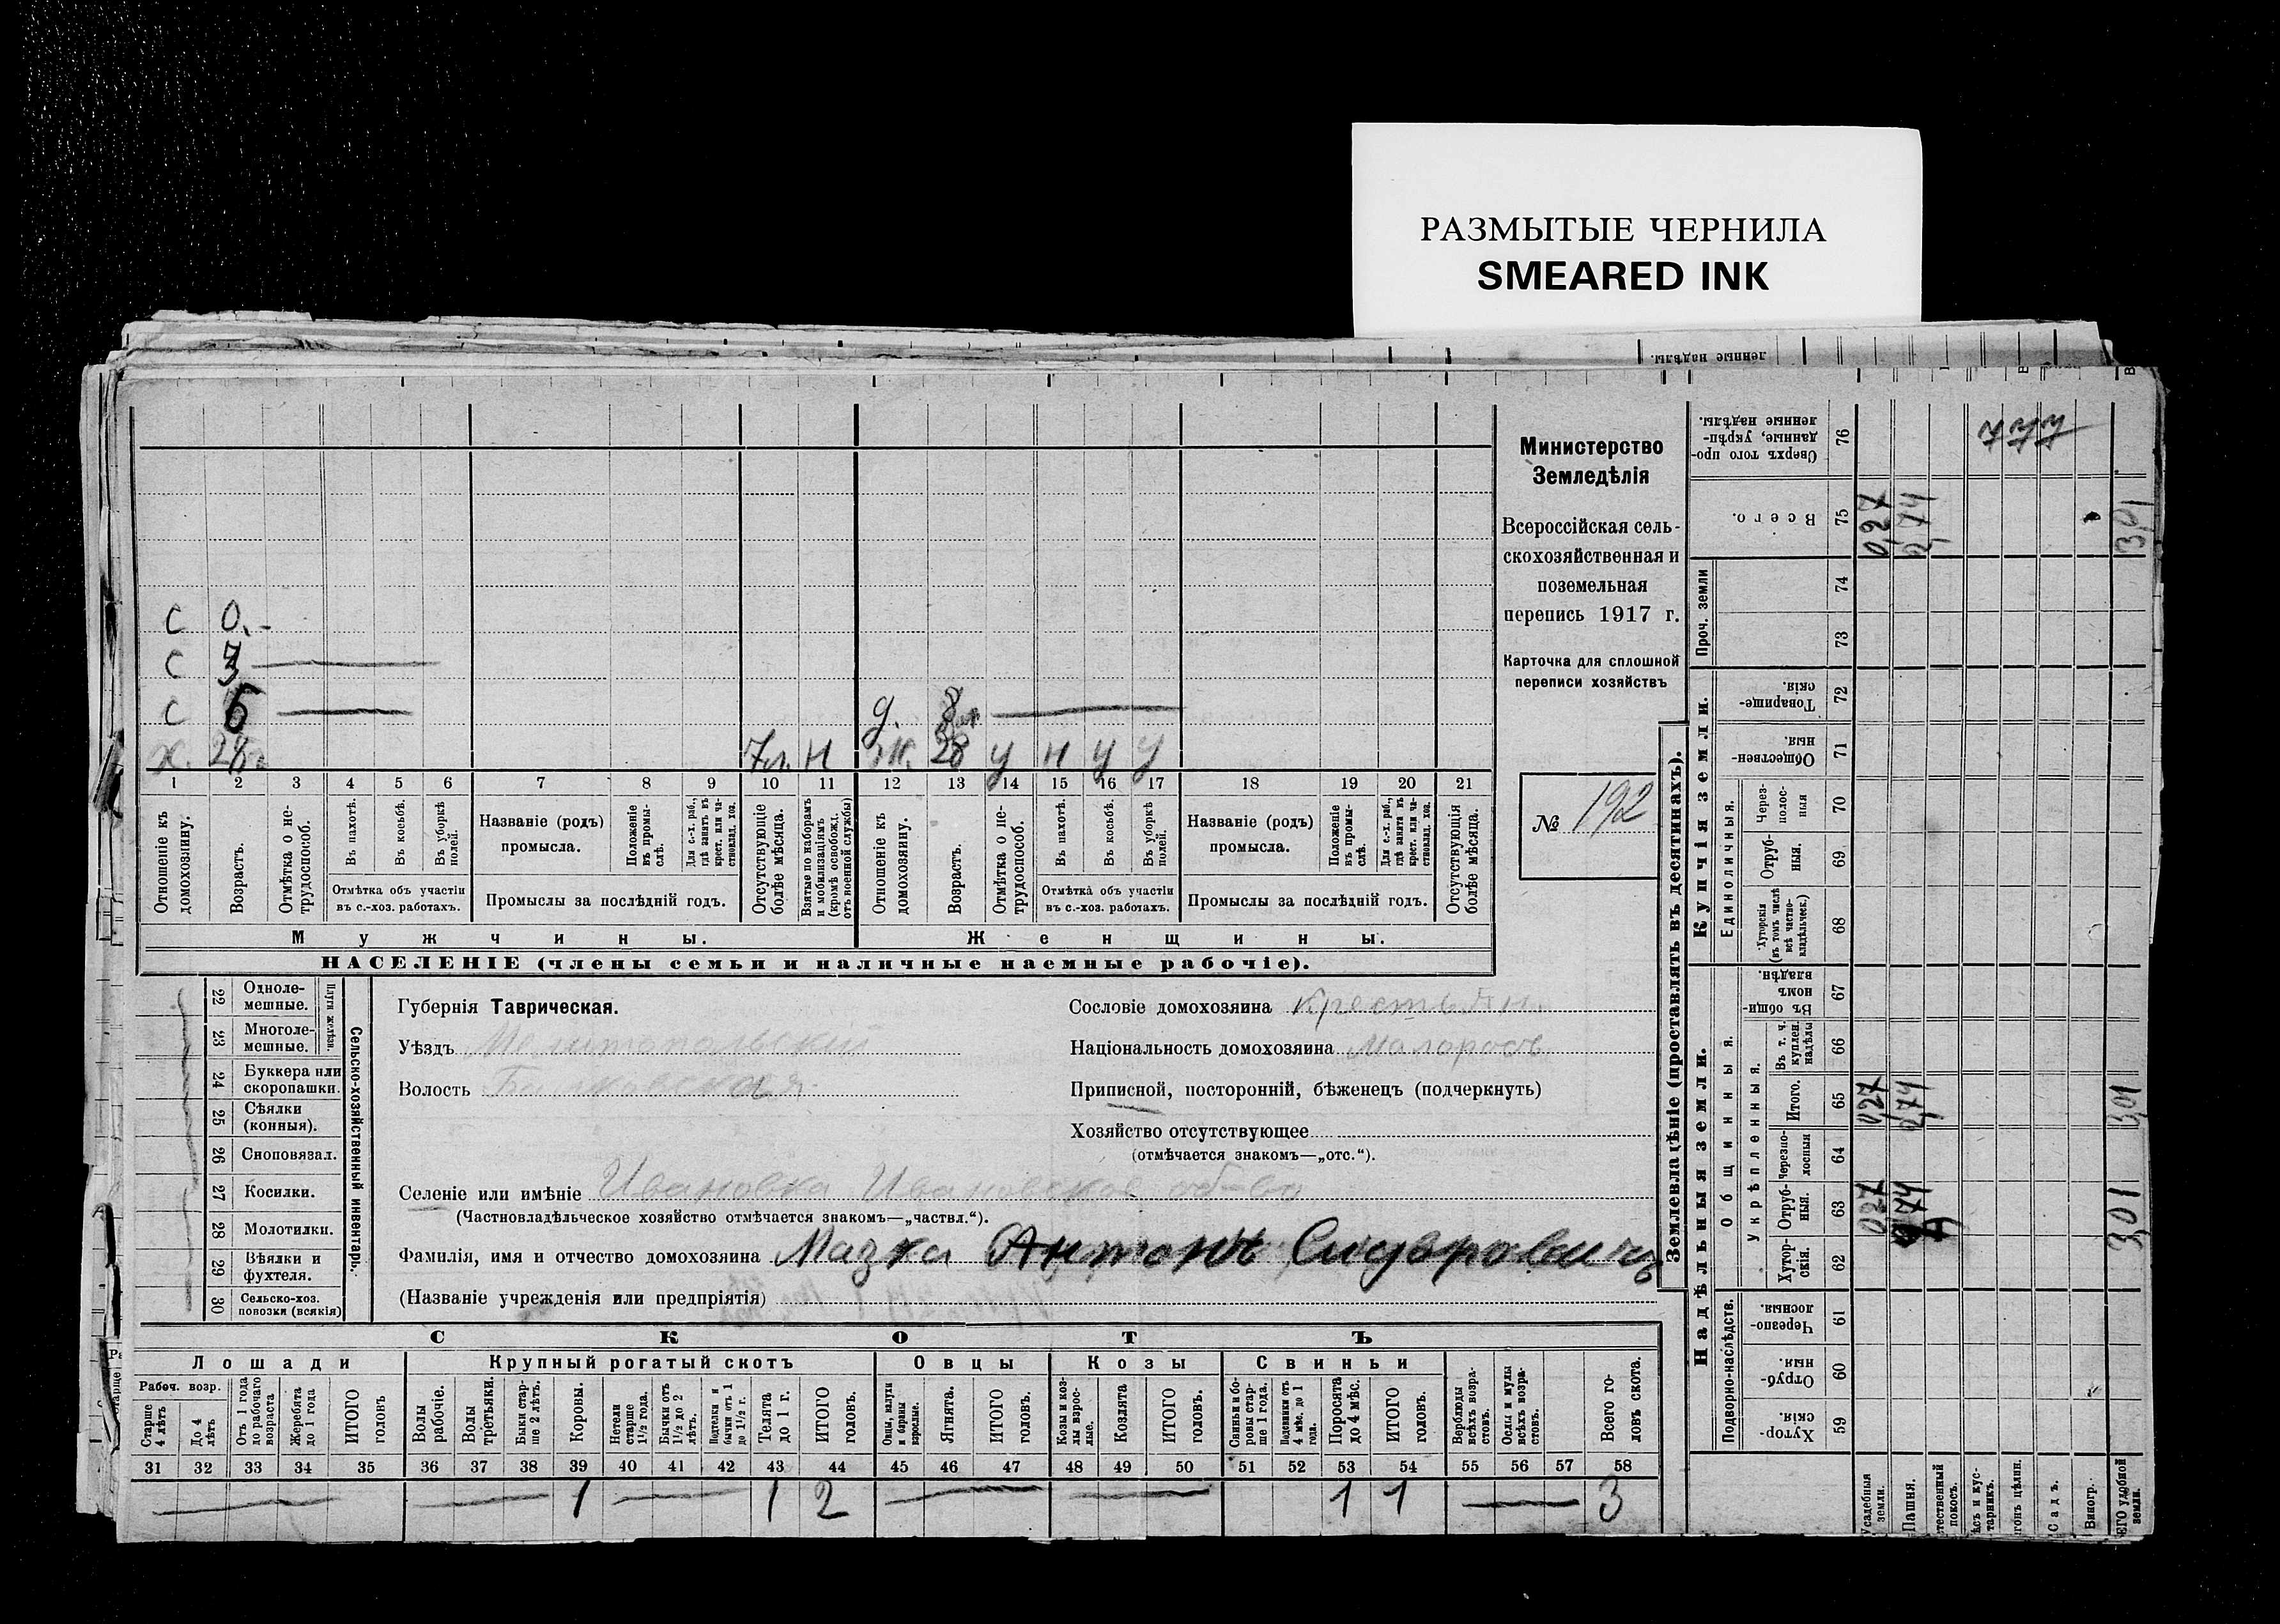 РАЗМЫТЫЕ ЧЕРНИЛА
SMEARED INK
ленные надѣлы.
Министерство
Земледѣлія
Всероссійская сель-
скохозяйственная и
поземельная
перепись 1917 г.
Карточка для сплошной
переписи хозяйствъ
№ 192
с 0.
с 3
с 6
х. 28
7м. н
д. 8
ж. 28 у н у у
1 2 3 4 5 6 7 8 9 10 11 12 13 14 15 16 17 18 19 20 21
Отношеніе къ домохозяину.
Возрастъ.
Отмѣтка о не-трудоспособ.
Въ пахотѣ.
Въ косьбѣ.
Въ уборкѣ полей.
Отмѣтка объ участіи
въ с.-хоз. работахъ.
Названіе (родъ)
промысла.
Положеніе въ промы-слѣ.
Для с.-х. раб., гдѣ занятъ въ крест. или ча-стновлад. хоз.
Промыслы за послѣдній годъ.
Отсутствующіе болѣе мѣсяца.
Взятые по наборамъ и мобилизаціямъ (кромѣ освобожд. отъ военной службы)
Отношеніе къ домохозяину.
Возрастъ.
Отмѣтка о не-трудоспособ.
Въ пахотѣ.
Въ косьбѣ.
Въ уборкѣ полей.
Отмѣтка объ участіи
въ с.-хоз. работахъ.
Названіе (родъ)
промысла.
Положеніе въ промы-слѣ.
Для с.-х. раб., гдѣ занята въ крест. или ча-стновлад. хоз.
Промыслы за послѣдній годъ.
Отсутствующія болѣе мѣсяца.
Мужчины.
Женщины.
НАСЕЛЕНІЕ (члены семьи и наличные наемные рабочіе).
22 Одноле-мешные.
23 Многоле-мешные.
Плуги желѣзн.
24 Буккера или скоропашки.
25 Сѣялки (конныя).
26 Сноповязал.
27 Косилки.
28 Молотилки.
29 Вѣялки и фухтеля.
30 Сельско-хоз. повозки (всякія)
Сельско-хозяйственный инвентарь.
Губернія Таврическая.
Уѣздъ Мелитопольскій
Волость Балковская
Сословіе домохозяина Крестьян.
Національность домохозяина Малороссъ
Приписной, посторонній, бѣженецъ (подчеркнуть)
Хозяйство отсутствующее
(отмѣчается знакомъ—„отс.“).
Селеніе или имѣніе Ивановка Ивановское об-во
(Частновладѣльческое хозяйство отмѣчается знакомъ—„частвл.“).
Фамилія, имя и отчество домохозяина Мазка Антонъ Сидоровичъ
(Названіе учрежденія или предпріятія)
СКОТЪ
Лошади
Крупный рогатый скотъ
Овцы
Козы
Свиньи
Рабоч. возр.
Старше 4 лѣтъ
До 4 лѣтъ
Отъ 1 года до рабочаго возраста
Жеребята до 1 года
ИТОГО головъ
Волы рабочіе.
Волы третьяки.
Быки стар-ше 2 лѣтъ.
Коровы.
Нетели старше 1½ года.
Бычки отъ 1½ до 2 лѣтъ.
Подтелки и бычки отъ 1 до 1½ г.
Телята до 1 г.
ИТОГО головъ.
Овцы, валухи и бараны взрослые.
Ягнята.
ИТОГО головъ.
Козы и коз-лы взрос-лые.
Козлята
ИТОГО головъ.
Свиньи и бо-ровы стар-ше 1 года.
Подсвинки отъ 4 мѣс. до 1 года.
Поросята до 4 мѣс.
ИТОГО головъ.
Верблюды всѣхъ возра-стовъ.
Ослы и мулы всѣхъ возра-стовъ.
Всего го-ловъ скота.
31 32 33 34 35 36 37 38 39 40 41 42 43 44 45 46 47 48 49 50 51 52 53 54 55 56 57 58
1 1 2 1 1 3
Землевладѣніе (проставлять въ десятинахъ).
Надѣльныя земли.
Купчія земли.
Проч. земли
Подворно-наслѣдств.
Общинныя.
Укрѣпленныя.
Единоличныя.
Сверхъ того про-данные, укрѣп-ленные надѣлы. 76
Всего. 75 0,27 2,74 3,01
74
73
Товарище-скія. 72
Обществен-ныя. 71
Через-полос-ныя 70
Отруб-ныя. 69
Хуторскія (въ томъ числѣ всѣ частно-владѣльческ.) 68
Въ общин-номъ владѣн. 67
Въ т. ч. куплен. надѣлы 66
Итого. 65 0,27 2,74 3,01
Черезпо-лосныя 64
Отруб-ныя. 63 0,27 2,74 3,01
Хутор-скія. 62
Черезпо-лосныя 61
Отруб-ныя. 60
Хутор-скія. 59
Усадебныя земли.
Пашня.
покосъ.
Садъ.
Виногр.
удобной земли.